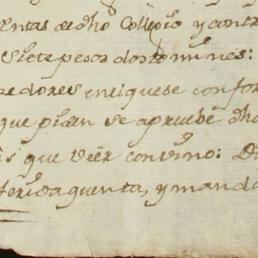 entas de dho Collegio y contr
siete pesos dos tomines:
edores en el que se confor
que piden se apruebe dho
es que Ver convino: D
terida quenta, y mando